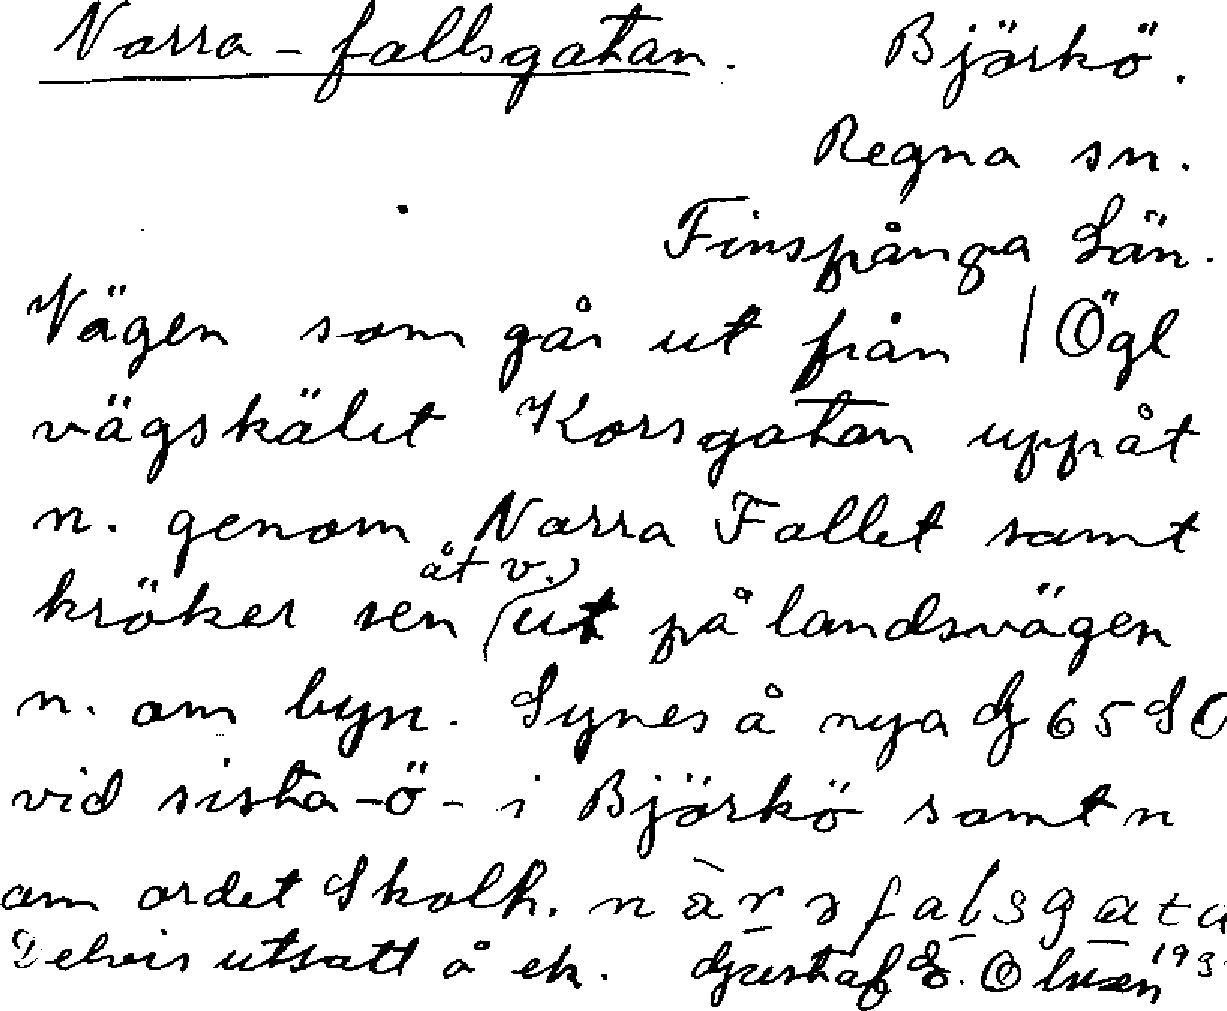 Norra-fallsgatan. Björkö.
Regna sn.
Finspånga Län.
Vägen som går ut från | Ögl
vägskälet Korsgatan uppåt
n. genom Norra Fallet samt
kröker sen åt v. ut på landsvägen
n. om byn. Synes å nya G 65 SO
vid sista -ö- i Björkö samt n
om ordet Skolh.
Delvis utsatt å ek. Gustaf E.